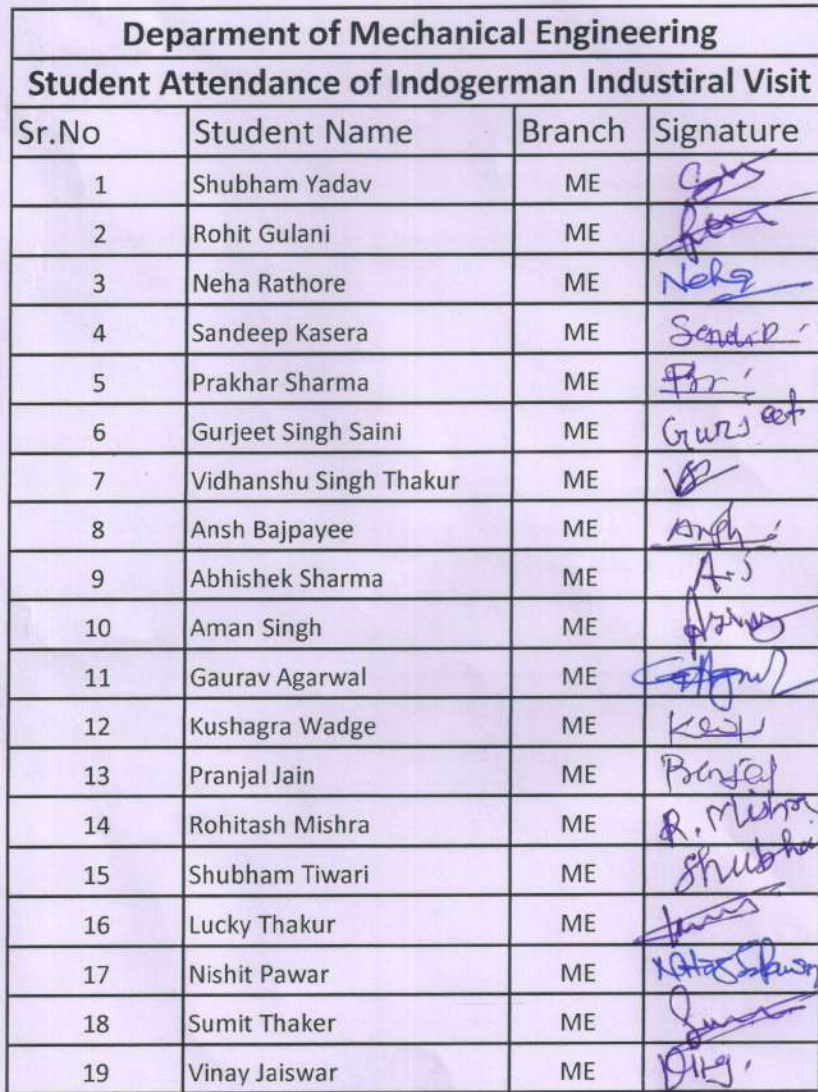 Deparment of Mechanical Engineering
Student Attendance of Indogerman Industiral Visit
Sr.No Student Name Branch Signature
1 Shubham Yadav ME
2 Rohit Gulani ME
3 Neha Rathore ME Neha
4 Sandeep Kasera ME
5 Prakhar Sharma ME
6 Gurjeet Singh Saini ME Gurjeet
7 Vidhanshu Singh Thakur ME
8 Ansh Bajpayee ME
9 Abhishek Sharma ME A.S
10 Aman Singh ME
11 Gaurav Agarwal ME
12 Kushagra Wadge ME
13 Pranjal Jain ME
14 Rohitash Mishra ME R. Mishra
15 Shubham Tiwari ME Shubha
16 Lucky Thakur ME
17 Nishit Pawar ME
18 Sumit Thaker ME
19 Vinay Jaiswar ME